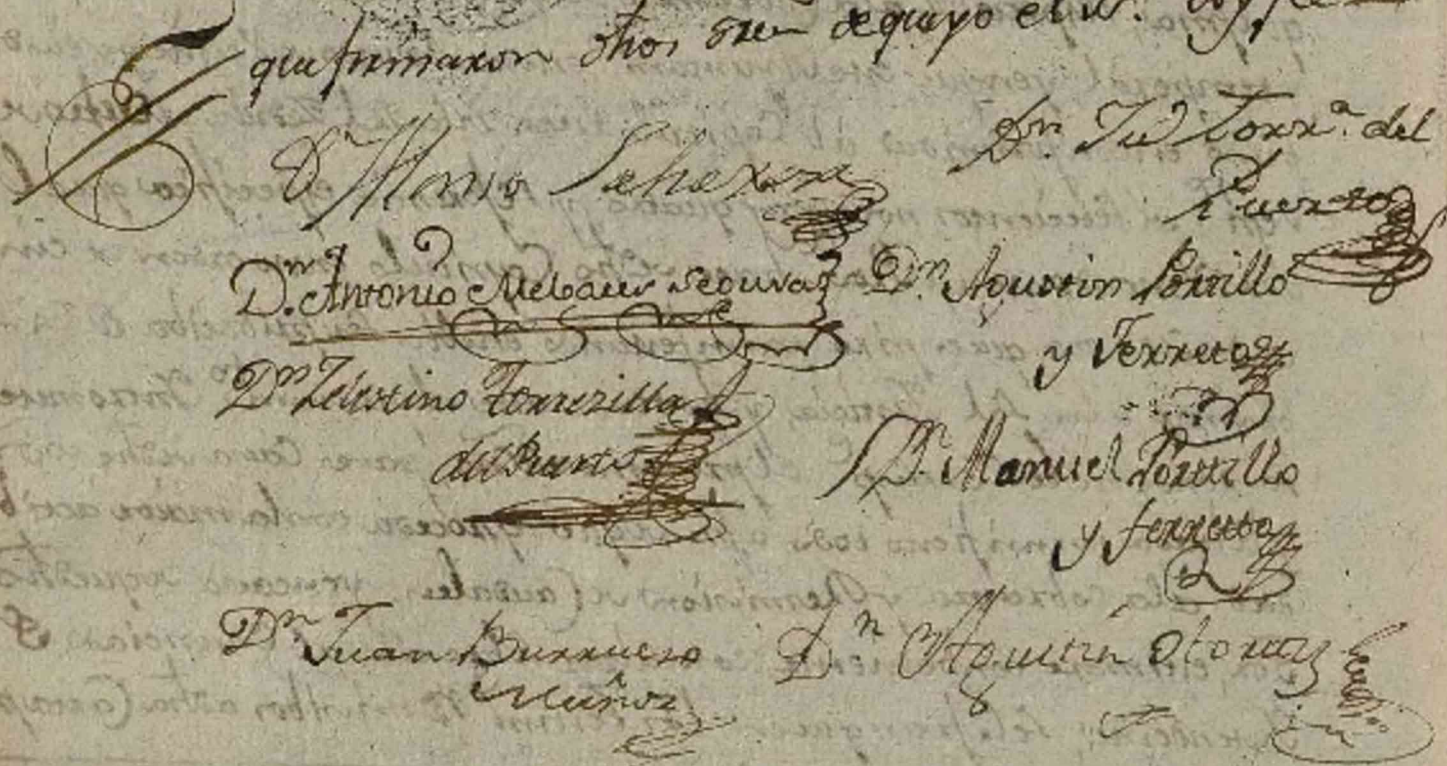 que firmaron dhos sres de quyo el
Dn Alonso
Dn Ju Torra. del
Puerto
Dn. Antonio Melgares Segura
Dn. Agustin Portillo
y Ferreto
Dn Zelestino Torrezilla
del Puerto
Dn. Manuel Portillo
y ferreto
Dn Juan Burruezo
Muñoz
Dn Agustin